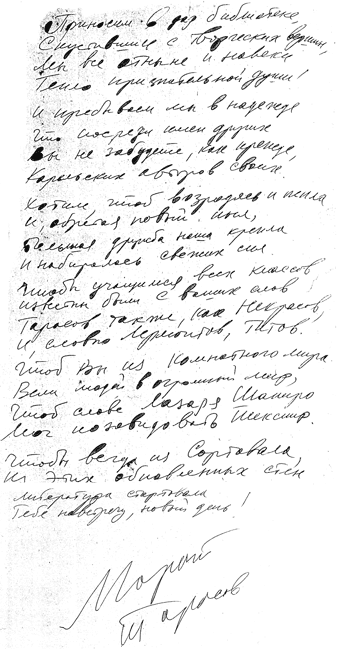 Приносим в дар библиотеке
Спустившись с творческих вершин,
Мы все отныне и навеки
Тепло признательной души!
И пребываем мы в надежде
Что посреди имен других
Вы не забудете, как прежде,
Карельских авторов своих.
Хотим, чтоб возродясь и
и, обретая новый пыл,
Большая дружба наша крепла
и набиралась свежих сил
Чтобы учащимся всех классов
известны были с ваших слов
Тарасов также, как Некрасов,
И, словно Лермонтов, Титов.
Чтоб вы из комнатного мира
Вели людей в огромный мир,
Чтоб славе Лазаря Шапиро
Мог позавидовать Шекспир.
Чтобы всегда из Сортавала,
Из этих обновленных стен
Литература стартовала
Тебе навстречу, новый день!
Марат
Тарасов